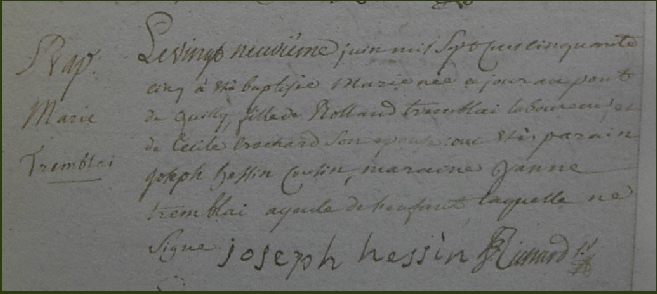 Bap.
Marie
Tremblai
Le vingt neuvième juin mil sept cens cinquante
cinq a été baptisée Marie née a jour au pont
de quilly, fille de Rolland tremblai laboureur et
de Cecile crochard son epouse: été parain
joseph hessin cousin, maraine janne
tremblai ayeule de l'enfant laquelle ne
signe. joseph hessin